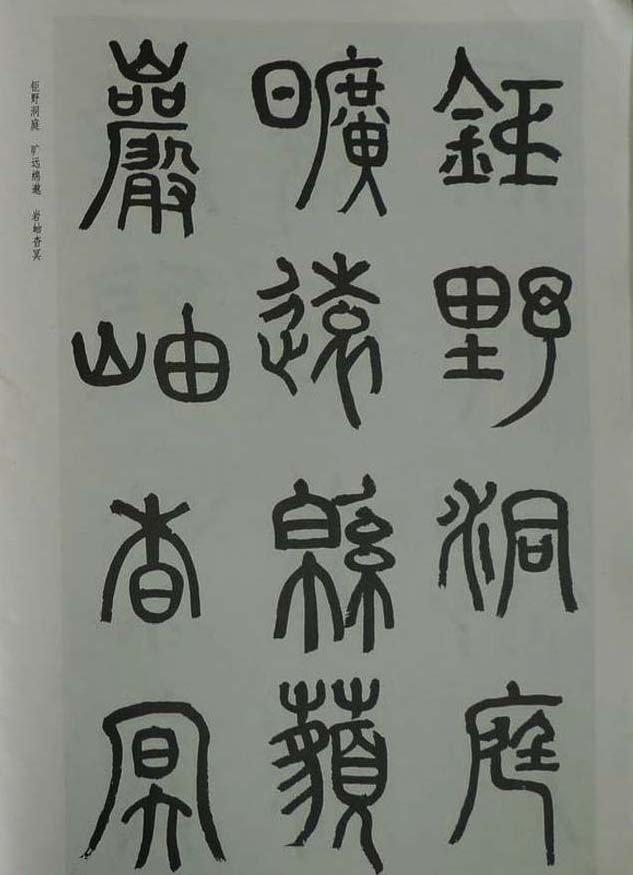 鉅野洞庭
曠遠緜藐
巖岫杳冥
钜野洞庭 旷远绵邈 岩岫杳冥